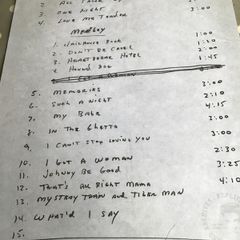 2. ALL
3. ONE NIGHT 3:00
4. LOVE ME TENDER
MEDLEY 1:00
1. JAILHOUSE ROCK 1:30
2. DON'T BE CRUEL 2:00
3. HEARTBREAK HOTEL 1:45
4. HOUND DOG
5. MEMORIES 3:00
6. SUCH A NIGHT 2:10
7. MY BABE 4:15
8. IN THE GHETTO 3:00
9. I CAN'T STOP LOVING YOU 2:30
10. I GOT A WOMAN 3:25
11. JOHNNY BE GOOD 4:10
12. THAT'S ALL RIGHT MAMA
13. MYSTERY TRAIN AND TIGER MAN
14. WHAT'D I SAY
15.